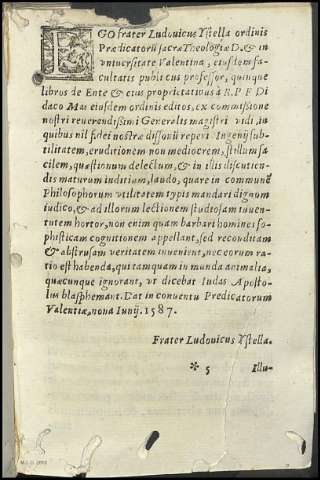 EGO frater Ludovicus Ystella ordinis
Prædicatorũ sacræ Theologiæ D. & in
vniuersitate Valentina, eiusdem fa-
cultatis publicus professor, quinque
libros de Ente & eius proprietatibus à R. P. F. Di
daco Mas eiusdem ordinis editos, ex commissione
nostri reuerendissimi Generalis magistri vidi, in
quibus nil fidei nostræ dissonũ reperi. Ingenij sub-
tilitatem, eruditionem non mediocrem, stillum fa-
cilem, quæstionum delectum, & in illis discutien-
dis maturum iuditium, laudo, quare in communẽ
Philosophorum vtilitatem typis mandari dignum
iudico, & ad illorum lectionem studiosam iuuen-
tutem hortor, non enim quam barbari homines so-
phisticam cognitionem appellant, sed reconditam
& abstrusam veritatem inuenient, nec eorum ra-
tio est habenda, qui tamquam in munda animalia,
quæcunque ignorant, vt dicebat Iudas Aposto-
lus blasphemant. Dat in conuentu Predicatorum
Valentiæ, nona Iunij. 1587.
Frater Ludouicus Ystella.
* 5 Illu-